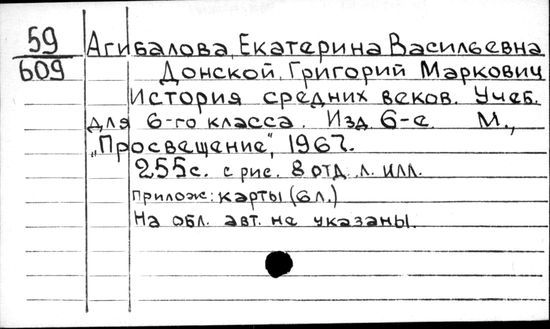 59 Агибалова, Екатерина Васильевна
609 Донской, Григорий Маркович
История средних веков. Учеб.
для 6-го класса. Изд. 6-е. М.,
„Просвещение", 1967.
255с. с рис. 8 отд. л. илл.
Прилож: карты (6 л.)
На обл. авт. не указаны.